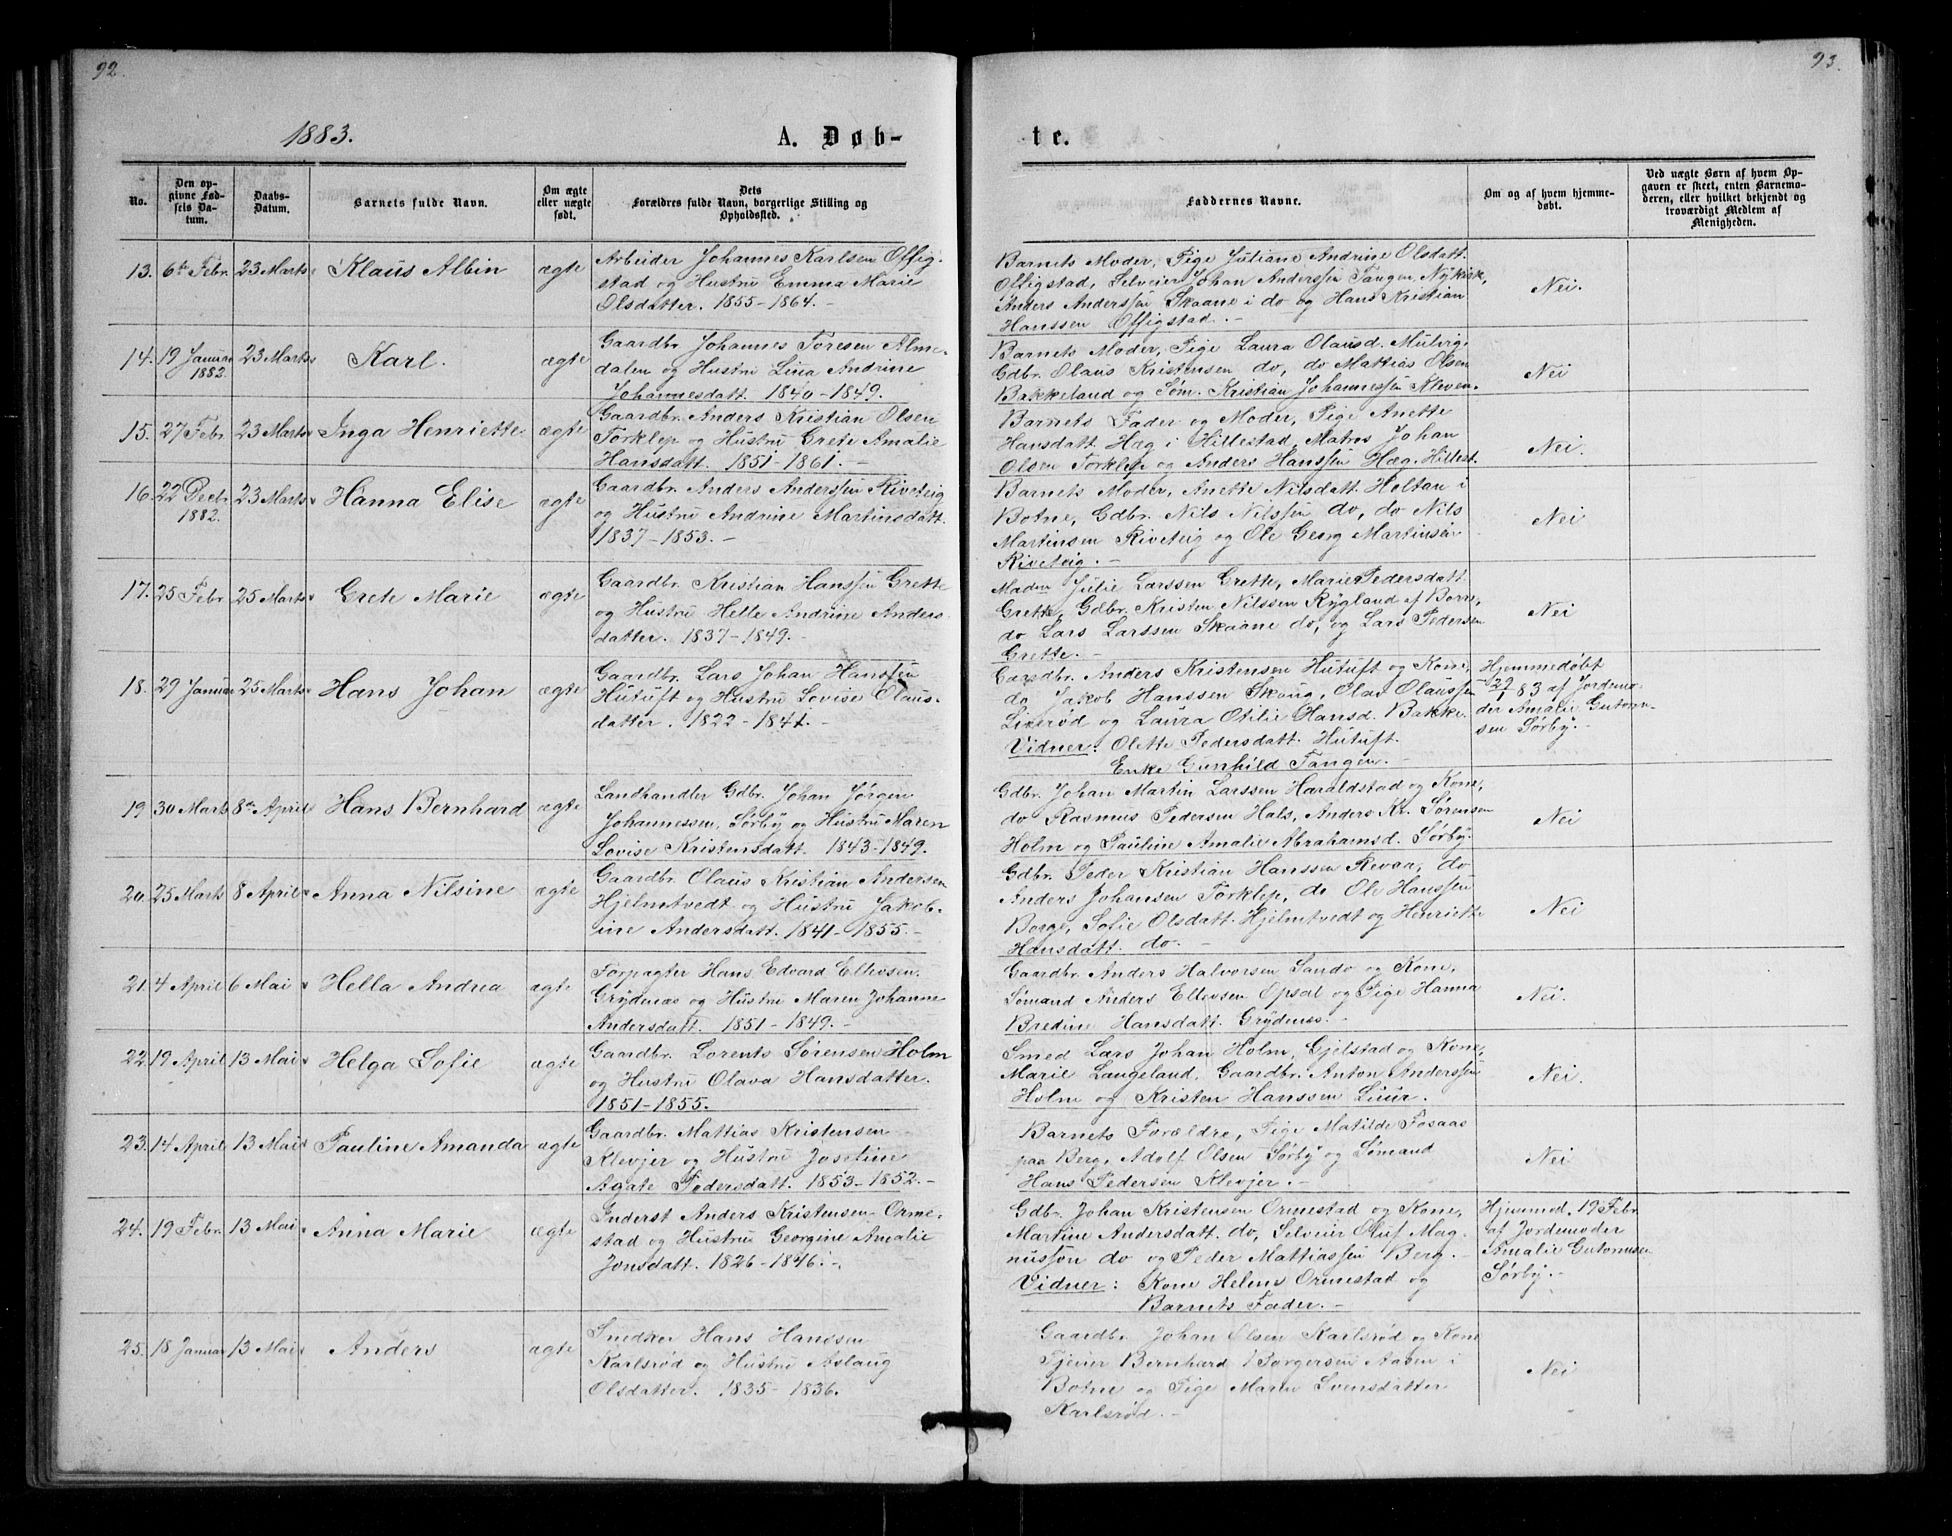 92.
93.
1883.
A. Døb-
te.
No.
Den op-
givne Fød-
sels Da-
tum.
Daabs-
Datum.
Barnets fulde Navn.
Om ægte
eller uægte
født.
Dets
Forældres fulde Navn, borgerlige Stilling og
Opholdssted.
Faddernes Navne.
Om og af hvem hjemme-
døbt.
Ved uægte Børn af hvem Op-
gaven er skeet, enten Barnemo-
deren, eller hvilket bekjendt og
troværdigt Medlem af
Menigheden.
13. 6te Febr. 23 Marts Klaus Albin ægte
Arbeider Johannes Karlsen Offig-
stad og Hustru Emma Marie
Olsdatter. 1855-1864.-
Barnets Moder, Pige Juliane Andrine Olsdatt.
Offigstad, Selveier Johan Anderssen Tangen, Nykirk,
Anders Anderssen Skaane i do og Hans Kristian
Hanssen Offigstad.-
Nei.
14. 19 Januar 1882. 23 Marts Karl. ægte
Gaardbr. Johannes Toresen Alme-
dalen og Hustru Lina Andrine
Johannesdatt. 1840-1849.
Barnets Moder, Pige Laura Olausd. Mulvig.
Gdbr. Olaus Kristensen do, do Mattias Olsen
Bakkeland og Søm. Kristian Johannessen Kleven.
Nei
15. 27 Febr. 23 Marts Inga Henriette ægte
Gaardbr. Anders Kristian Olsen
Torklep og Hustru Grete Amalie
Hansdatt. 1851-1861.-
Barnets Fader og Moder, Pige Anette
Hansdatt. Hæg i Hillestad, Matros Johan
Olsen Torklep og Anders Hanssen Hæg, Hillest.
Nei.
16. 22 Decbr. 1882. 23 Marts Hanna Elise ægte
Gaardbr. Anders Anderssen Riveteig
og Hustru Andrine Martinsdatt.
1837-1853.-
Barnets Moder, Anette Nilsdatt. Holtan i
Botne, Gdbr. Nils Nilssen do, do Nils
Martinsen Riveteig og Ole Georg Martinsen
Riveteig.-
Nei
17. 25 Febr. 25 Marts Grete Marie ægte
Gaardbr. Kristian Hanssen Grette
og Hustru Helle Andrine Anders-
datter. 1837-1849.-
Maden Julie Larssen Grette, Marie Pedersdatt.
Grette, Gdbr. Kristen Nilssen Rygland af Borre,
do Lars Larssen Skaane do, og Lars Pedersen
Grette.-
Nei
18. 29 Januar 25 Marts Hans Johan ægte
Gaardbr. Lars Johan Hanssen
Hutuft og Hustru Lovise Olaus-
datter. 1822-1841.-
Gaardbr. Anders Kristensen Hutuft og Kone,
do Jakob Hanssen Skoug, Olav Olaussen
Linerød og Laura Otilie Hansd. Bakke.
Vidner: Olette Pedersdatt. Hutuft.
Enke Gunhild Tangen.-
Hjemmedøbt
29/1 83 af Jordmo-
der Amalie Gutorm-
sen Sørby.-
19. 30 Marts 8de April Hans Bernhard ægte
Landhandler Gdbr. Johan Jørgen
Johannessen, Sørby og Hustru Maren
Lovise Kristensdatt. 1843-1849.
Gdbr. Johan Martin Larssen Haraldstad og Kone,
do Rasmus Pedersen Hals, Anders Kr. Sørensen
Holm og Pauline Amalie Abrahamsd. Sørby.
Nei
20. 25 Marts 8 April Anna Nilsine ægte
Gaardbr. Olaus Kristian Andersen
Hjelmtvedt og Hustru Jakob-
ine Andersdatt. 1841-1855.-
Gdbr. Peder Kristian Hanssen Revaa, do
Anders Johansen Torklep, do Ole Hanssen
Borge, Sofie Olsdatt. Hjelmtvedt og Henriette
Hansdatt. do.-
Nei
21. 4 April 6 Mai Hella Andrea ægte
Forpagter Hans Edvard Ellevsen
Grydenæs og Hustru Maren Johanne
Andersdatt. 1851-1849.-
Gaardbr. Anders Halvorsen Sando og Kone,
Sømand Anders Ellevsen Opsal og Pige Hanna
Bredine Hansdatt. Grydenæs.-
Nei.
22. 19 April 13 Mai Helga Sofie ægte
Gaardbr. Lorents Sørensen Holm
og Hustru Olava Hansdatter.
1851-1855.
Smed Lars Johan Holm, Gjelstad og Kone,
Marie Langeland, Gaardbr. Anton Anderssen
Holm og Kristen Hanssen Liuur.
Nei.
23. 14 April 13 Mai Pauline Amanda ægte
Gaardbr. Mattias Kristensen
Klevjer og Hustru Josefine
Agate Pedersdatt. 1853-1852.-
Barnets Forældre, Pige Matilde Fosaas
paa Berg, Adolf Olsen Sørby og Sømand
Hans Pedersen Klevjer.-
Nei
24. 19 Febr. 13 Mai Anna Marie ægte
Inderst Anders Kristensen Orme-
stad og Hustru Georgine Amalie
Jonsdatt. 1826-1846.-
Gdbr. Johan Kristensen Ormestad og Kone,
Martine Andersdatt. do, Selveier Oluf Mag-
nussøn do og Peder Mattiassen Berg.-
Vidner: Kone Helene Ormestad og
Barnets Fader.-
Hjemmed. 19 Febr.
af Jordmoder
Amalie Gutormsen
Sørby.-
25. 18 Januar 13 Mai Anders ægte
Snedker Hans Hanssen
Karlsrød og Hustru Aslaug
Olsdatter. 1835-1836.
Gaardbr. Johan Olsen Karlsrød og Kone
Tjener Bernhard Borgersen Aasen i
Botne og Pige Maren Svensdatter
Karlsrød.-
Nei